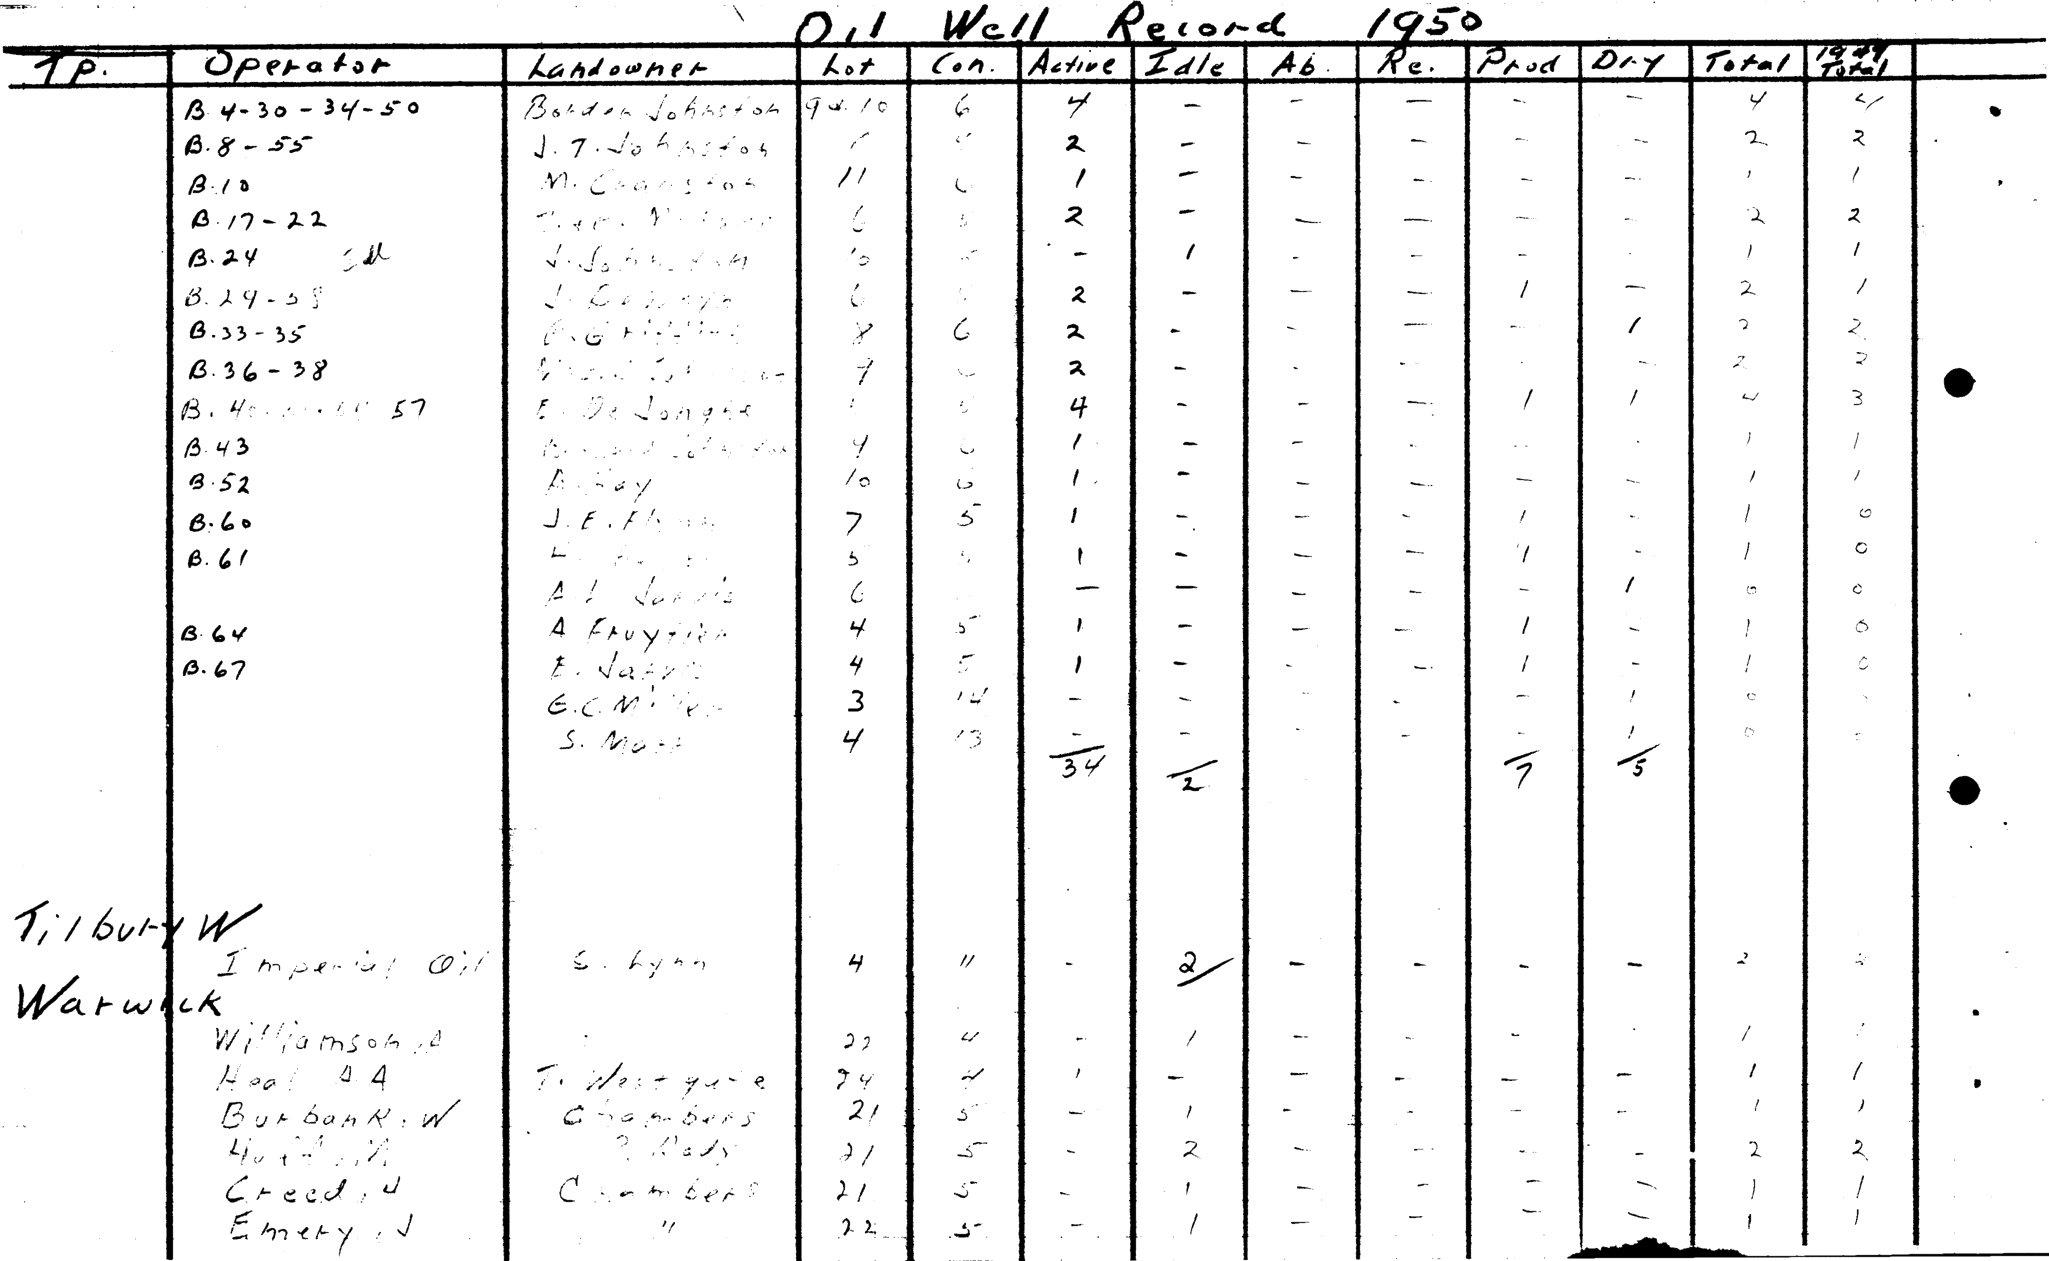 Oil Well Record 1950
Tp. Operator Landowner Lot Con. Active Idle Ab. Re. Prod Dry Total 1949 Total
B.4-30-34-50 Borden Johnston 9 & 10 6 4 - - - - - 4 4
B.8-55 J.T. Johnston 2 - - - - - 2 2
B.10 M. Cranston 11 6 1 - - - - - 1 1
B.17-22 6 5 2 - - - - - 2 2
B.24 J. Johnston 10 - 1 - - - - 1 1
B.29-58 J. 6 5 2 - - - 1 - 2 1
B.33-35 8 6 2 - - - - 1 2 2
B.36-38 9 6 2 - - - - - 2 2
B. 57 E. De Jonghe 5 4 - - - 1 1 4 3
B.43 9 6 1 - - - - - 1 1
B.52 A. Fay 10 6 1 - - - - - 1 1
B.60 J.E. Flynn 7 5 1 - - - 1 - 1 0
B.61 5 5 1 - - - 1 - 1 0
A L Jarvis 6 - - - - - 1 0 0
B.64 A Fruytier 4 5 1 - - - 1 - 1 0
B.67 E. Jarvis 4 5 1 - - - 1 - 1 0
G.C. Miller 3 14 - - - - - 1 0
S. 4 13 - - - - - 1 0
34 2 7 5
Tilbury W
Imperial Oil S. Lynn 4 11 - 2 - - - - 2 2
Warwick
Williamson, A 22 4 - 1 - - - - 1 1
Heal A A T. Westgate 24 4 1 - - - - - 1 1
Burbank, W Chambers 21 5 - 1 - - - - 1 1
21 5 - 2 - - - - 2 2
Creed, H Chambers 21 5 - 1 - - - - 1 1
Emery, J " 22 5 - 1 - - - - 1 1